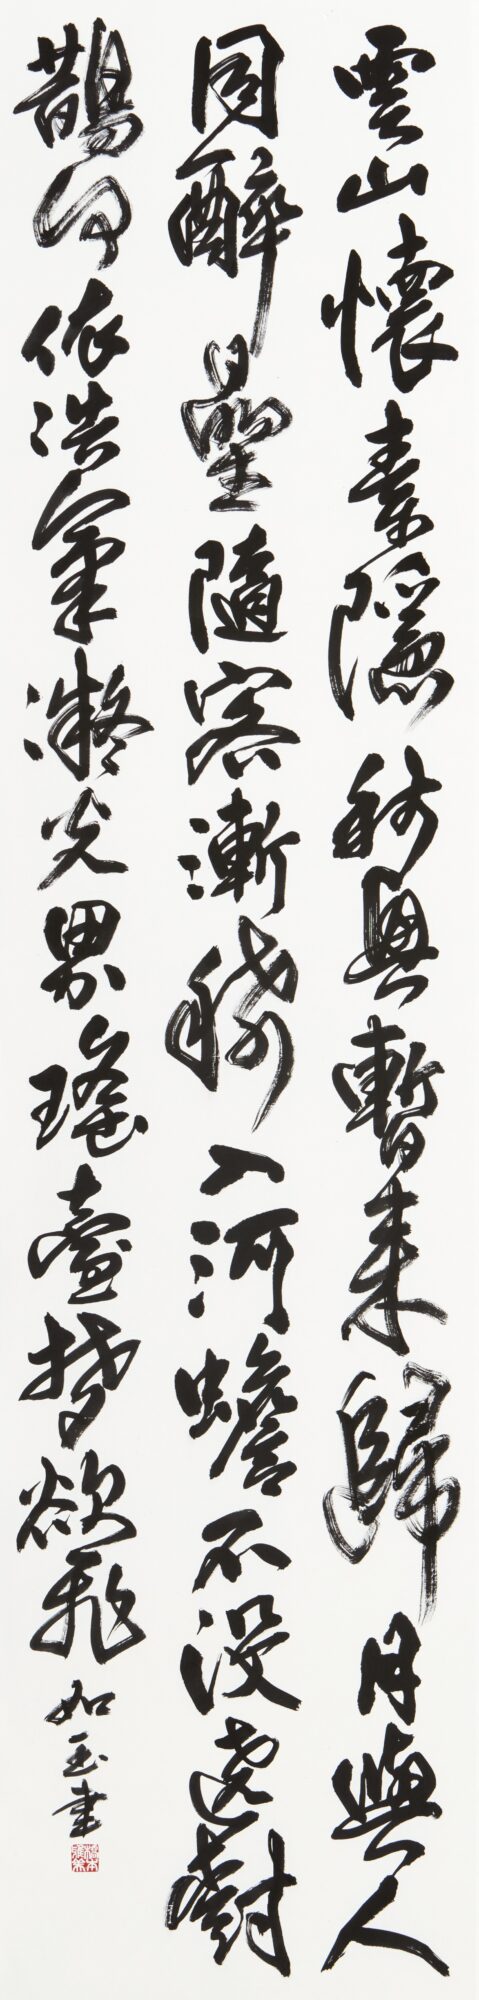 雲山懷素隱秋興暫来歸月與人
同醉星隨客漸稀入河蟾不没遶樹
鵲何依浩氣凝光界瑤臺夢欲飛
如玉書